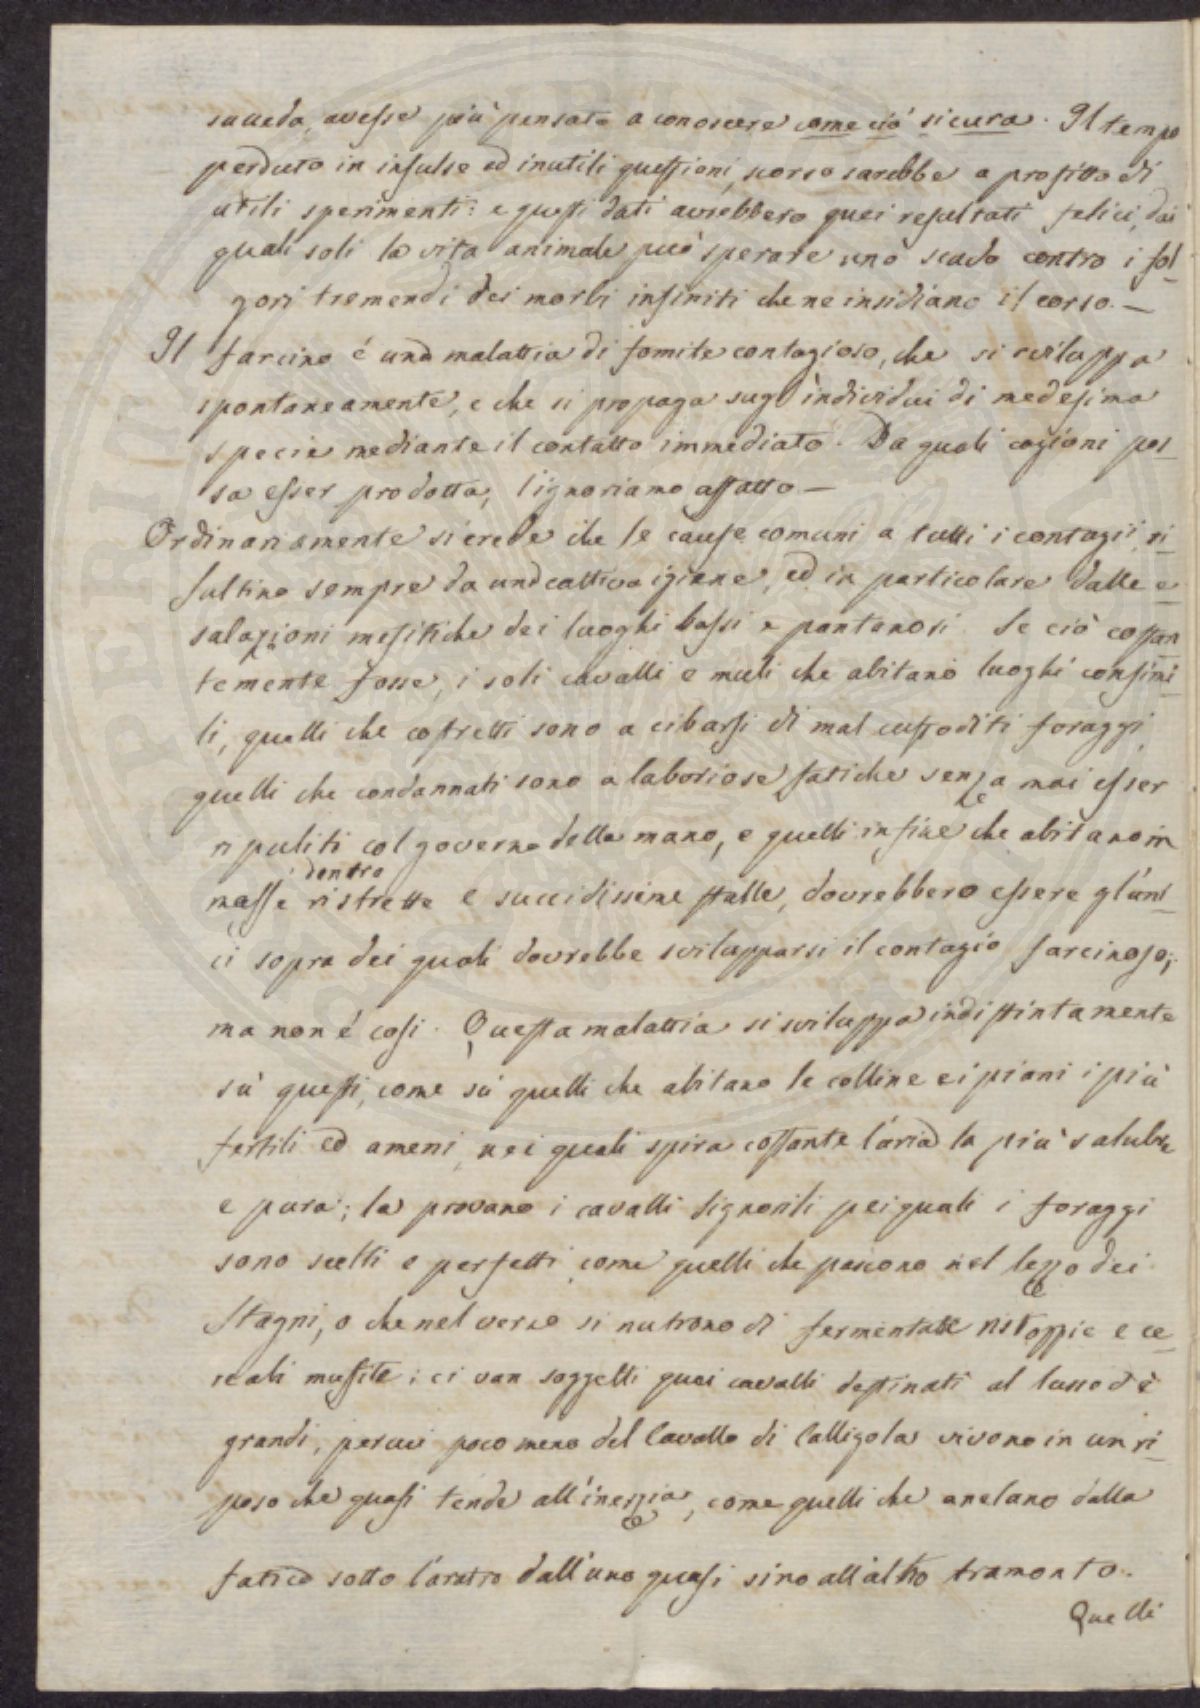 succeda, avesse più pensato a conoscere come ciò si cura. Il tempo
perduto in insulse ed inutili questioni, scorso sarebbe a profitto di
utili sperimenti: e questi dati avrebbero quei resultati felici, dai
quali soli la vita animale può sperare uno scudo contro i fol-
gori tremendi dei morbi infiniti che ne insidiano il corso. —
Il farcino é una malattia di fomite contagioso, che si sviluppa
spontaneamente, e che si propaga sugl'individui di medesima
specie mediante il contatto immediato. Da quali cagioni pos-
sa esser prodotta, l'ignoriamo affatto —
Ordinariamente si crede che le cause comuni a tutti i contagii ri-
sultino sempre da una cattiva igiene, ed in particolare dalle e-
salazioni mefitiche dei luoghi bassi e pantanosi. Se ciò costan-
temente fosse, i soli cavalli e muli che abitano luoghi consimi-
li, quelli che costretti sono a cibarsi di mal custoditi foraggi,
quelli che condannati sono a laboriose fatiche senza mai esser
ripuliti col governo della mano, e quelli infine che abitano in
dentro
masse ristrette e succidissime stalle, dovrebbero essere gl'uni-
ci sopra dei quali dovrebbe svilupparsi il contagio farcinoso;
ma non é cosi. Questa malattia si sviluppa indistintamente
sù questi, come sù quelli che abitano le colline e i piani i più
fertili ed ameni, nei quali spira costante l'aria la più salubre
e pura; la provano i cavalli signorili pei quali i foraggi
sono scelti e perfetti, come quelli che pascono nel lezzo dei
stagni, o che nel verno si nutrono di fermentate ristoppie e ce-
reali muffite; ci van soggetti quei cavalli destinati al lusso dè
grandi, per cui poco meno del Cavallo di Calligola vivono in un ri-
poso che quasi tende all'inerzia, come quelli che anelano dalla
fatica sotto l'aratro dall'uno quasi sino all'altro tramonto.
Quelli